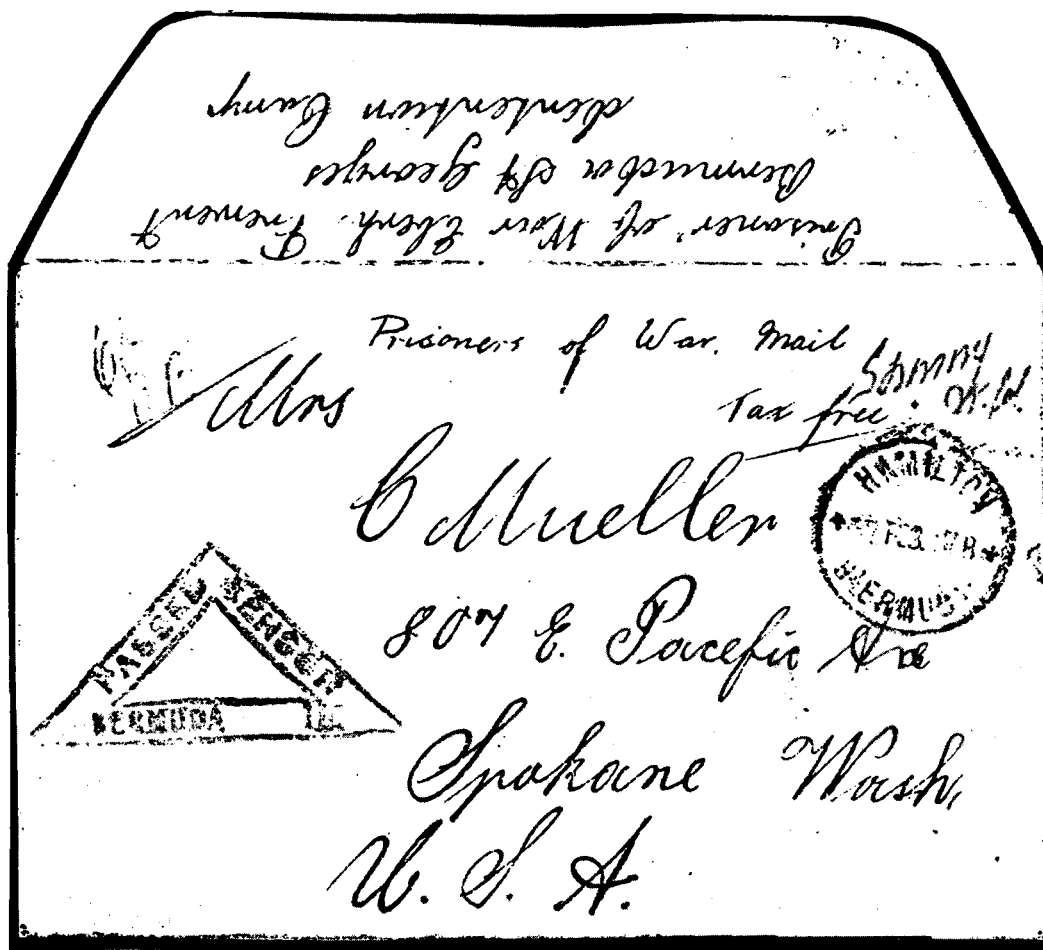 Prisoner of War Eberh. Frement
Bermuda St Georges
dentention Camp
Prisoners of War. Mail
Tax free.
Mrs
C Mueller
807 E. Pacefic Ave
Spokane Wash,
U. S. A.
HAMILTON
FEB
BERMUDA
PASSED CENSOR
BERMUDA